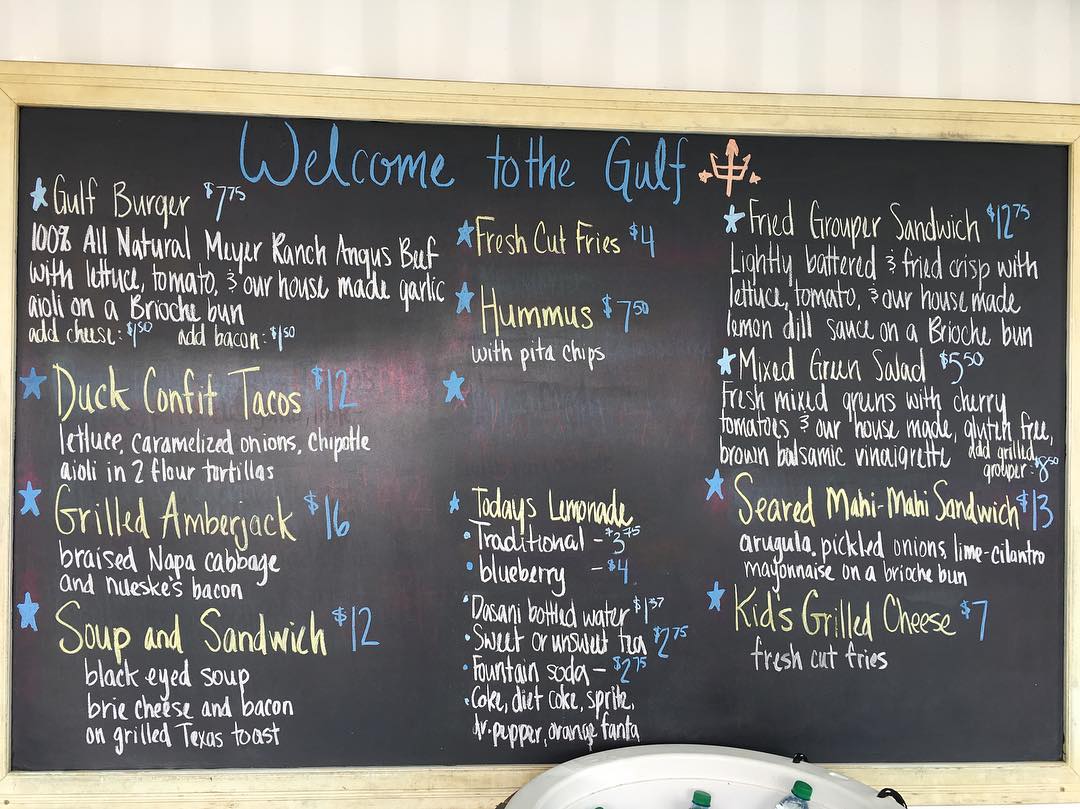 Welcome to the Gulf
Gulf Burger $7.75
100% All Natural Meyer Ranch Angus Beef
with lettuce, tomato, & our house made garlic
aioli on a Brioche bun
add cheese: $1.50 add bacon: $1.50
Duck Confit Tacos $12
lettuce, caramelized onions, chipotle
aioli in 2 flour tortillas
Grilled Amberjack $16
braised Napa cabbage
and nueske's bacon
Soup and Sandwich $12
black eyed soup
brie cheese and bacon
on grilled Texas toast
Fresh Cut Fries $4
Hummus $7.50
with pita chips
Todays Lemonade
• Traditional - $3.75
• blueberry - $4
Dasani bottled water $1.37
• Sweet or unsweet tea $2.75
• Fountain soda - $2.75
• Coke, diet coke, sprite,
dr. pepper, orange fanta
Fried Grouper Sandwich $12.75
Lightly battered & fried crisp with
lettuce, tomato, & our house made
lemon dill sauce on a Brioche bun
Mixed Green Salad $5.50
Fresh mixed greens with cherry
tomatoes & our house made, gluten free,
brown balsamic vinaigrette add grilled
grouper: $8.50
Seared Mahi-Mahi Sandwich $13
arugula, pickled onions, lime-cilantro
mayonnaise on a brioche bun
Kid's Grilled Cheese $7
fresh cut fries